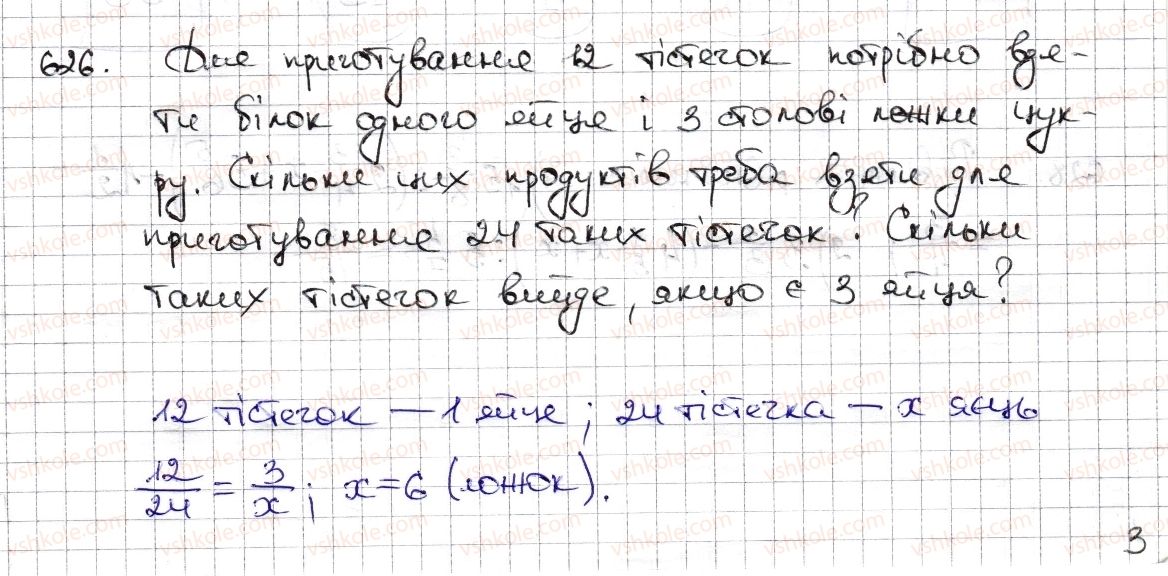 626. Для приготування 12 тістечок потрібно взя-
ти білок одного яйця і 3 столові ложки цук-
ру. Скільки цих продуктів треба взяти для
приготування 24 таких тістечок? Скільки
таких тістечок вийде, якщо є 3 яйця?
12 тістечок — 1 яйце; 24 тістечка — x яєць
12/24 = 3/x; x=6 (ложок).
3